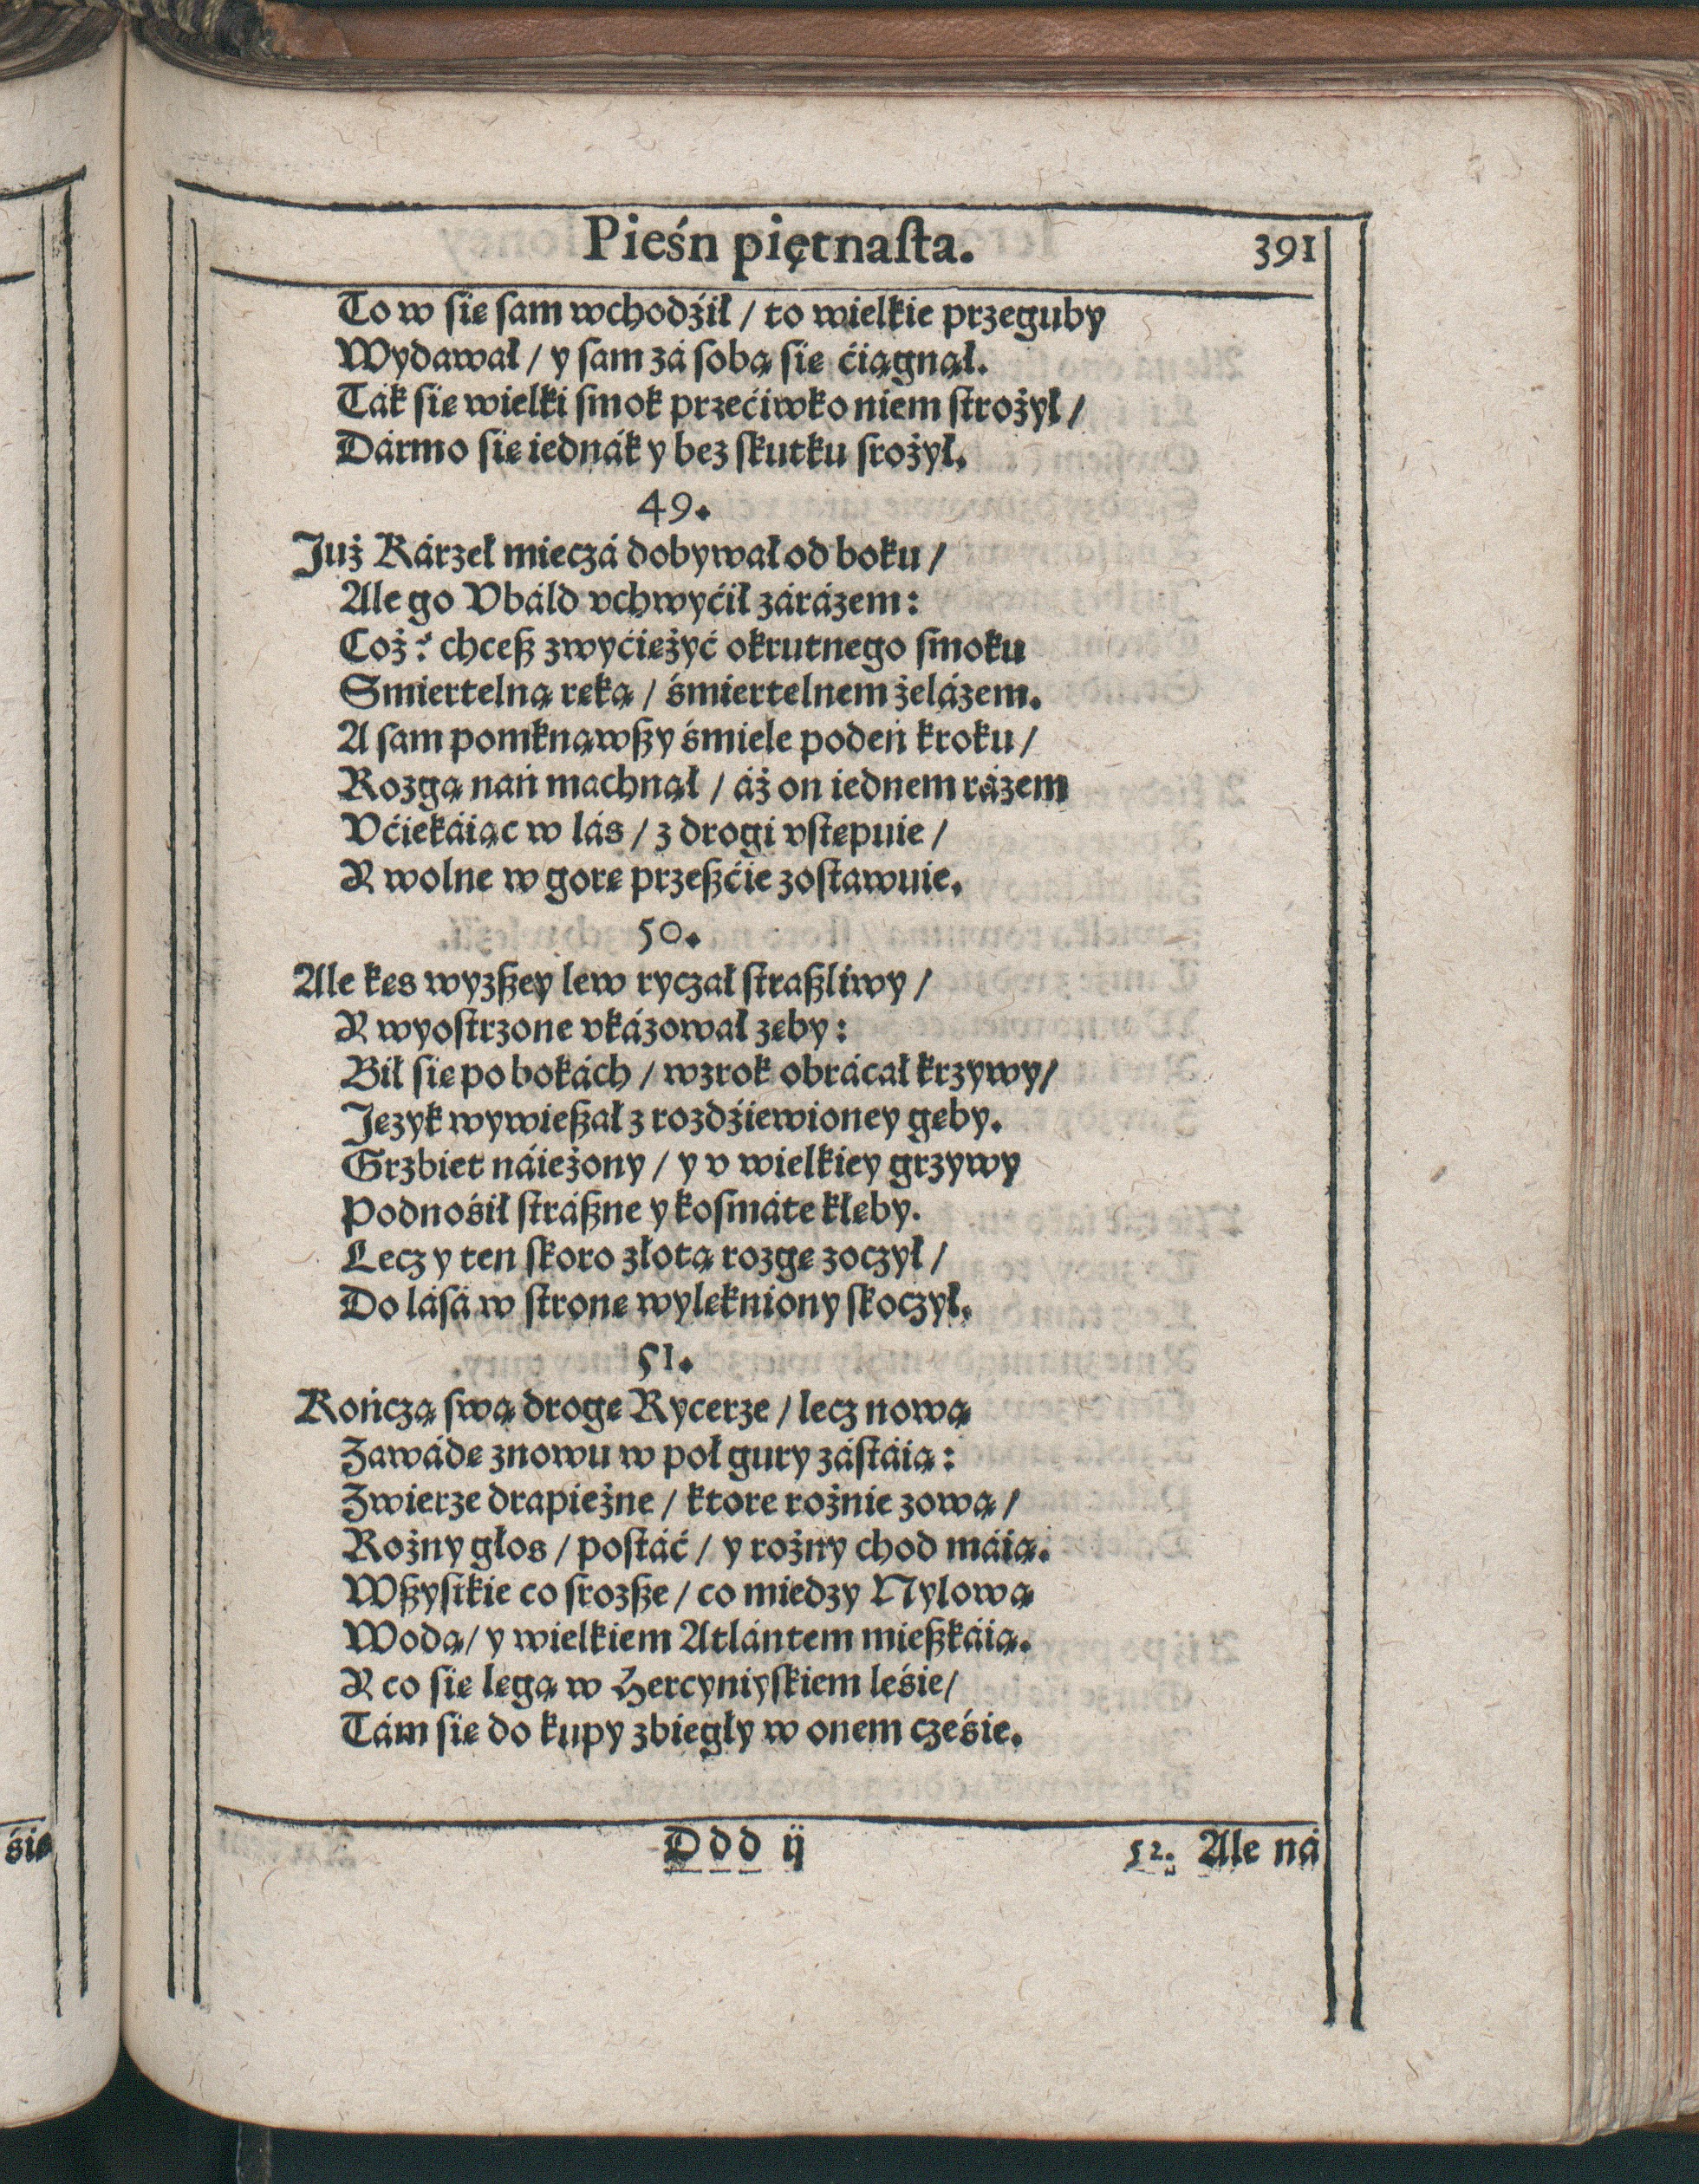 Pieśń piętnaſta. 391
To w ſie ſam wchodźił / to wielkie przeguby
Wydawał / y ſam zá ſobą ſie ćiągnął.
Ták ſie wielki ſmok przećiwko niem ſtrożył /
Dármo ſie iednák y bez ſkutku ſrożył.
49.
Już Kárzeł mieczá dobywał od boku /
Ale go Vbáld vchwyćił zárázem:
Coż? chceß zwyćiężyć okrutnego ſmoku
Smiertelną ręką / śmiertelnem żelázem.
A ſam pomknąwßy śmiele podeń kroku /
Rozgą nań machnął / áż on iednem rázem
Vćiekáiąc w lás / z drogi vſtępuie /
Y wolne w gorę przeßćie zoſtawuie.
50.
Ale kęs wyzßey lew ryczał ſtraßliwy /
Y wyoſtrzone vkázował zęby:
Bił ſie po bokách / wzrok obrácał krzywy /
Język wywießał z rozdźiewioney gęby.
Grzbiet náieżony / y v wielkiey grzywy
Podnośił ſtráßne y koſmáte kłęby.
Lecz y ten ſkoro złotą rozgę zoczył /
Do láſá w ſtronę wylękniony ſkoczył.
51.
Kończą ſwą drogę Rycerze / lecz nową
Zawádę znowu w poł gury záſtáią:
Zwierze drapieżne / ktore rożnie zową /
Rożny głos / poſtáć / y rożny chod máią.
Wßyſtkie co ſrozße / co między Nylową
Wodą / y wielkiem Atlántem mießkáią.
Y co ſie lęgą w Hercyniyſkiem leśie /
Tám ſie do kupy zbiegły w onem cześie.
Ddd ij 52. Ale ná
śie